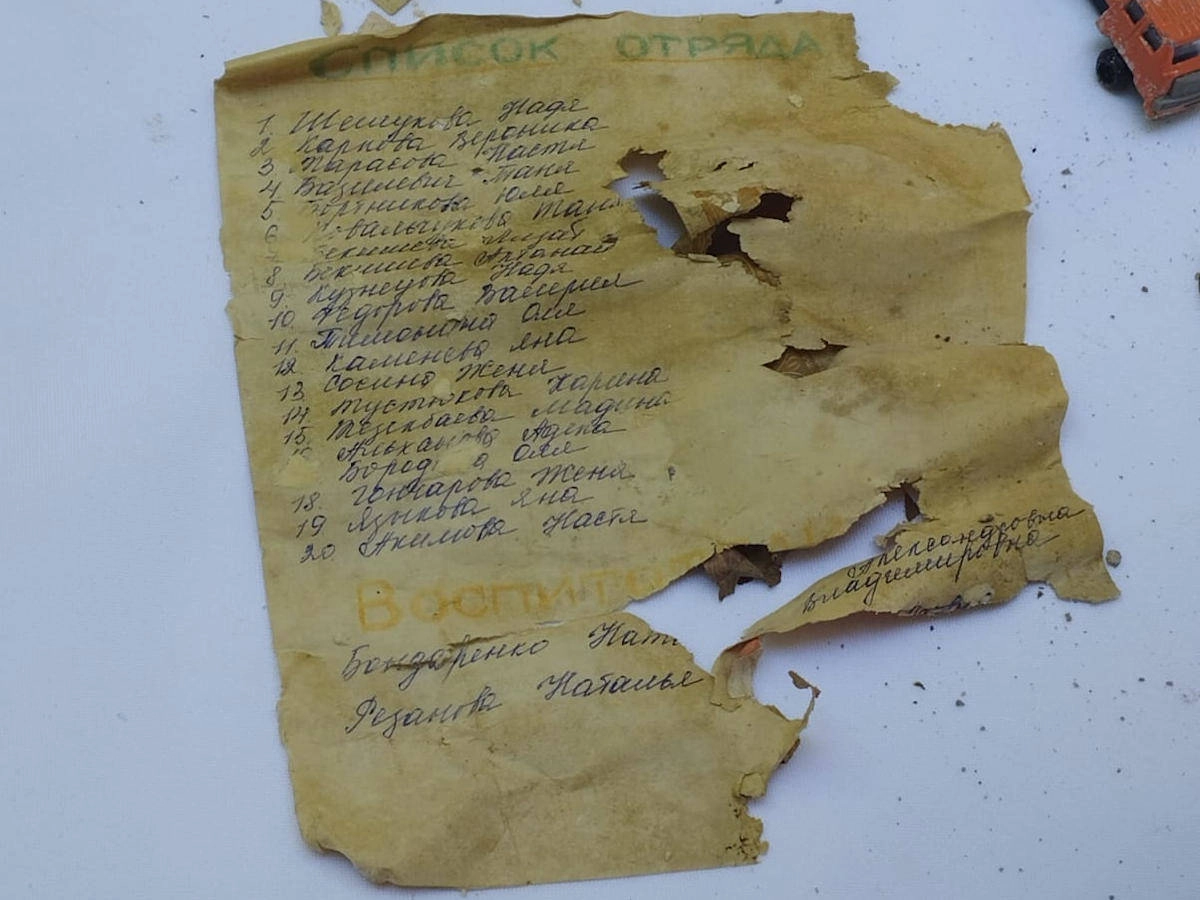 СПИСОК ОТРЯДА
1. Шешукова Надя
2 Карпова Вероника
3 Тарасова Настя
4 Базилевич Таня
5 Бортникова Юля
6 Ковальчукова Таня
7 Бекишева
8 Бекишева
9. Кузнецова Надя
10. Федорова Валерия
11. Оля
12. Каменева Яна
13 Сосино Женя
14 Карина
15. Мадина
Адека
Бород а Оля
18. Гончарова Женя
19 Языкова Яна
20. Акимова Настя
Воспит
Бондаренко Ната Александровна
Резанова Наталья Владимировна